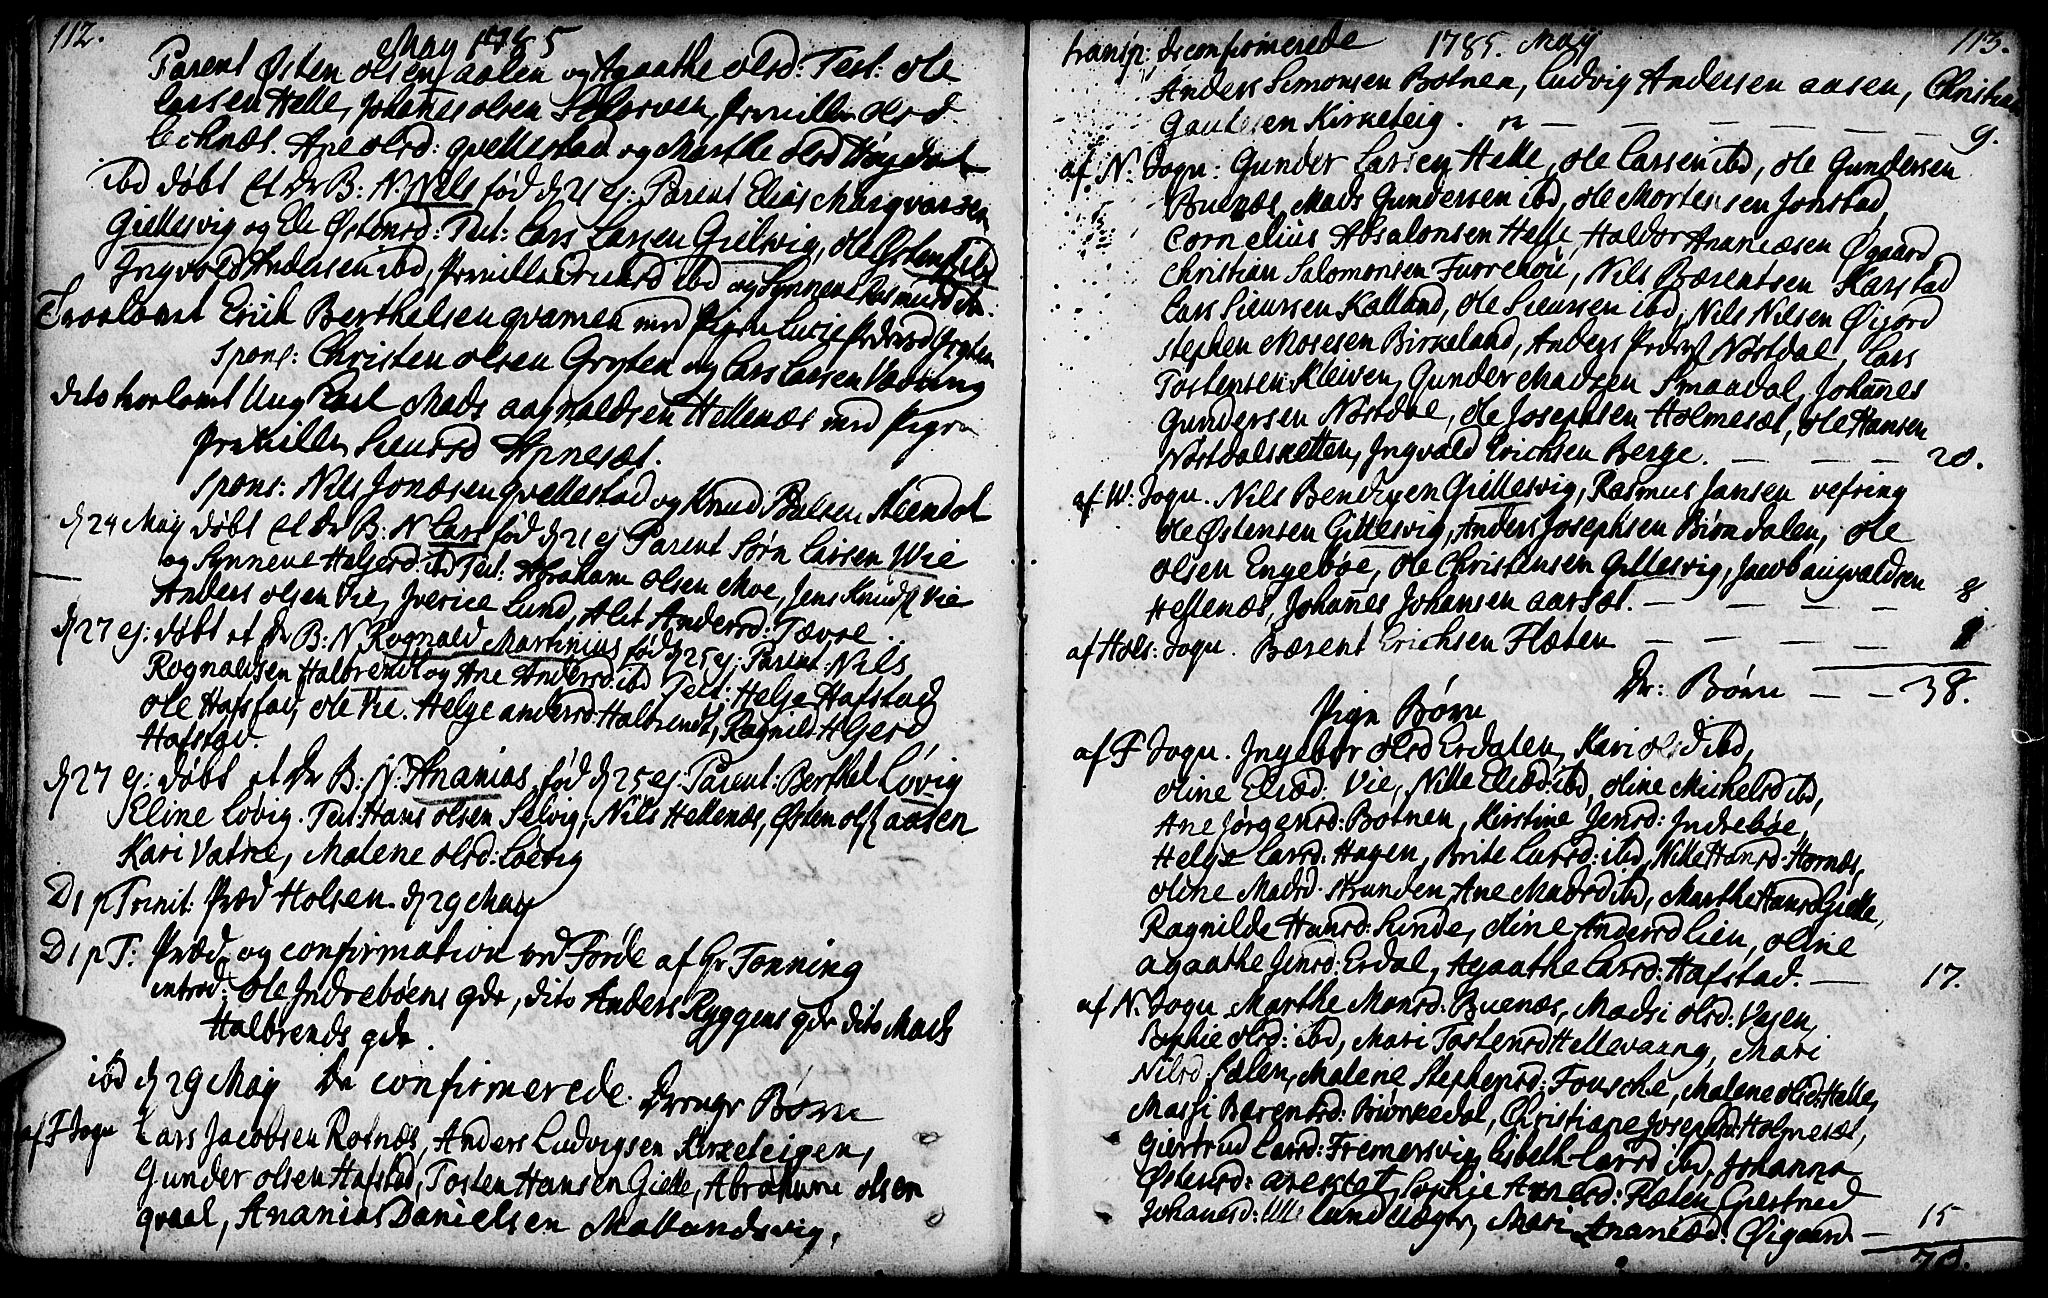 112.
May 1785
Parent Østen olsen aalen og Agaathe olsd: Test: ole
Larsen Helle, Johanes olsen, Pernille olsd
Ane olsd: qvellestad og Marthe olsd
ibd døbt et Dr B: N. Nils fød d 21 ej: Parent Elias Marqvorsen
Giellesvig og Ele Østensd: Test: Lars Larsen Gielsvig, ole Østens ibd
Ingvold Andersen ibd, Pernille ibd og Synneve Rasmusd ibd.
Troelovet Erich Berthelsen qvamen med Pigen Lucie Pedersd Gryten
Spons: Christen olsen Gryten og Lars Larsen Vadving
dito trolovet Ung Karl Mads aagnaldsen Hellenæs med Pigen
Pernille Siursd Apnesæt.
Spons: Nils Jonæsen qvellestad og Knud Poulsen Steendal
d 24 May døbt et Dr B: N Lars fød d 21 ej Parent Sørn Larsen Wie
og Synneve Helgesd: ibd Test: Abraham olsen Moe, Jens Knuds Vie
Anders olsen Vie, Iverice Lund, Alit Andersd: Tævoe.
d 27 ej: døbt et Dr B: N Rognald Martinius fød d 25 ej: Parent: Nils
Rognaldsen Halbrendt og Ane Andersd: ibd Test: Helge Hafstad,
ole Hafstad, ole Vie. Helge andersd: Halbrendt, Ragnild H Gerd
Hafstad.
d 27 ej: døbt et Dr B: N: Ananias fød d 25 ej: Parent: Berthel Løvig
Eline Løvig. Test: Hans olsen Selvig, Nils Hellenæs, Østen ols: aasen
Kari Vatne, Malene olsd: Løevig
D 1 p Trinit: Præd Holsen. d 29 May
D 1 p T: Præd. og confirmation ved Førde af Hr Tonning
introd: ole Indrebøens qdr, dito Anders Ryggens qdr dito Mads
Halbrends qdr.
ibd d 29 May De confirmerede. Drenge Børn
af F Sogn Lars Jacobsen Rotnæs, Anders Ludvigsen Kirketeigen,
Gunder olsen Hafstad, Tosten Hansen Gielle, Abraham olsen
qvaal, Ananias Danielsen Mallandsvig,
113.
transp: de confirmerede 1785. May
Anders Simonsen Botnen, Ludvig Andersen aasen, Christian
Gautesen Kirketeig. — — — — — — 9.
af N: Sogn: Gunder Larsen Helle, ole Larsen ibd, ole Gundersen
Buenæs, Mads Gundersen ibd, ole Mortensen Jonstad,
Cornelius Absalonsen Helle, Haldor Ananiæsen Øgaard
Christian Salomonsen Furrehou, Nils Bærentsen Karstad
Lars Siursen Kalland, ole Siursen ibd, Nils Nilsen Øigord
Stephen Mosesen Birkeland, Anders Peders Nøstdal, Lars
Tostensen Kleiven, Gunder Madsen Smaadal, Johanes
Gundersen Nøstdal, ole Josephsen Holmesæt, ole Hansen
Nøstdalsletten, Ingvald Erichsen Berge. — — — 20.
af W: Sogn. Nils Bendixen Giellesvig, Rasmus Jansen vefring
ole Østensen Gillesvig, Anders Josephsen Biøndalen, ole
olsen Engebøe, ole Christensen Gillesvig, Jacob augvaldsen
Hellenæs, Johanes Johansen aarsæt. — — — — 8
af Hols: Sogn. Bærent Erichsen Flæten — — — — 1
Dr: Børn — — 38.
Pige Børn
af F Sogn. Ingebor olsd Erdalen, Kari olsd ibd,
oline Eliæd: Vie, Nille Eliæd: ibd, oline Michelsd ibd,
Ane Jørgensd: Botnen, Kirstine Jensd: Indrebøe,
Helge Larsd: Hagen, Brite Larsd: ibd, Nille Hansd: Hornæs,
oline Madsd. Strunden, Ane Madsd ibd, Marthe Hansd Gielle,
Ragnilde Hansd: Sunde, oline Andersd Lien, oline
agaathe Jensd: Erdal, Agaathe Larsd: Hafstad. — 17.
af N. Sogn Marthe Monsd: Buenæs, Madsi olsd: Vasen,
Sophie olsd: ibd, Mari Tostensd Hellevaang, Mari
Nilsd Sælen, Malene Stephensd: Fousche, Malene olsd: Helle,
Massi Bærentsd: Biørkedal, Christiane Josephsd: Holmesæt,
Giertrud Larsd: Fremersvig, Lisbeth Larsd ibd, Johanna
Østensd:, Sophie Arnesd: Flæten, Giertrud
Johanesd:, Mari Ananiæd: Øigaard — 15
70.